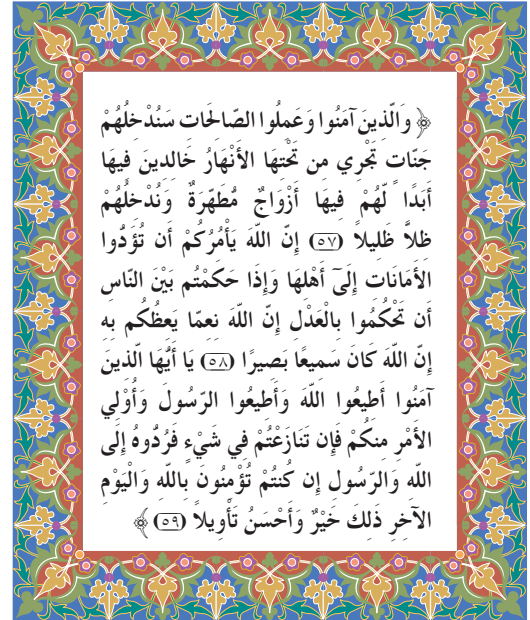 ﴿ وَالّذينَ آمَنُوا وَعَملُوا الصّالحَات سَنُدْخلُهُمْ
جنّات تَجْري من تَحْتهَا الأَنْهَارُ خَالدينَ فيهَا
أَبَدًا لّهُمْ فيهَا أَزْوَاجٌ مُّطَهّرَةٌ وَنُدْخلُهُمْ
ظلاًّ ظَليلاً (٥٧) إنّ اللّهَ يَأْمُرُكُمْ أَن تُؤَدُّوا
الأَمَانَات إلَىٓ أَهْلهَا وَإذَا حَكَمْتُم بَيْنَ النّاس
أَن تَحْكُمُوا بالْعَدْل إنّ اللّهَ نعمّا يَعظُكُم به
إنّ اللّهَ كَانَ سَميعًا بَصيرًا (٥٨) يَا أَيُّهَا الّذينَ
آمَنُوا أَطيعُوا اللّهَ وَأَطيعُوا الرّسُولَ وَأُوْلي
الأَمْر منكُمْ فَإن تَنَازَعْتُمْ في شَيْء فَرُدُّوهُ إلَى
اللّه وَالرّسُول إن كُنتُمْ تُؤْمنُونَ باللّه وَالْيَوْم
الآخر ذَلكَ خَيْرٌ وَأَحْسَنُ تَأْويلاً (٥٩) ﴾